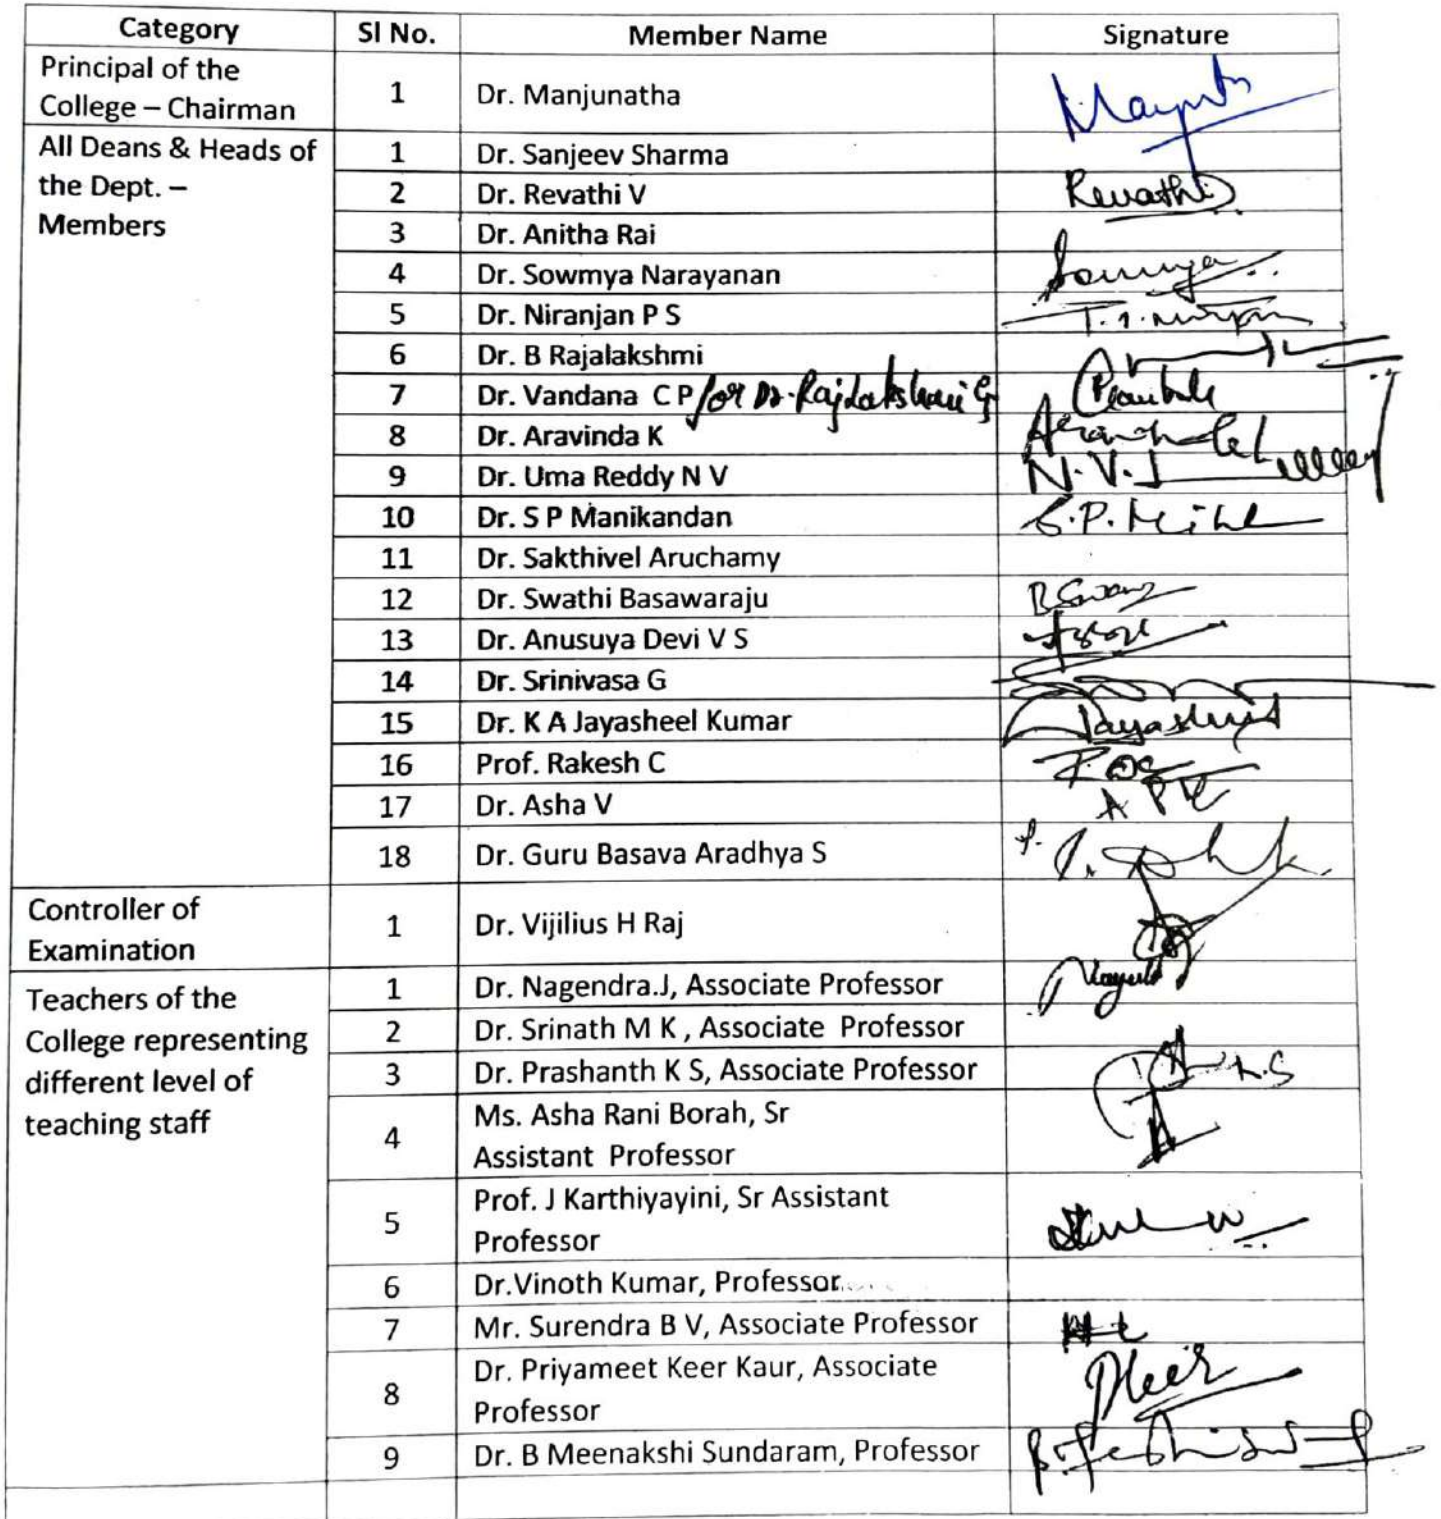 Category Sl No. Member Name Signature
Principal of the
College – Chairman 1 Dr. Manjunatha
All Deans & Heads of
the Dept. –
Members
1 Dr. Sanjeev Sharma
2 Dr. Revathi V Revathi
3 Dr. Anitha Rai
4 Dr. Sowmya Narayanan Sowmya
5 Dr. Niranjan P S
6 Dr. B Rajalakshmi
7 Dr. Vandana C P for Dr. Rajalakshmi
8 Dr. Aravinda K
9 Dr. Uma Reddy N V N.V.
10 Dr. S P Manikandan S.P.
11 Dr. Sakthivel Aruchamy
12 Dr. Swathi Basawaraju
13 Dr. Anusuya Devi V S
14 Dr. Srinivasa G
15 Dr. K A Jayasheel Kumar
16 Prof. Rakesh C
17 Dr. Asha V
18 Dr. Guru Basava Aradhya S
Controller of
Examination 1 Dr. Vijilius H Raj
Teachers of the
College representing
different level of
teaching staff
1 Dr. Nagendra.J, Associate Professor
2 Dr. Srinath M K , Associate Professor
3 Dr. Prashanth K S, Associate Professor K.S
4 Ms. Asha Rani Borah, Sr
Assistant Professor
5 Prof. J Karthiyayini, Sr Assistant
Professor
6 Dr.Vinoth Kumar, Professor
7 Mr. Surendra B V, Associate Professor
8 Dr. Priyameet Keer Kaur, Associate
Professor
9 Dr. B Meenakshi Sundaram, Professor